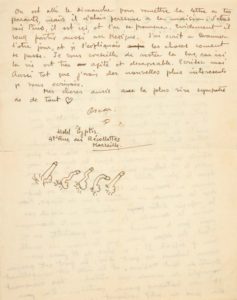 On est allé le dimanche pour remettre la lettre a tes
parents mais il n'étais personne a la maison, j'étais
 Paris, il est ici et l'on promene, évidement il
veut partir aussi au Mexique. J'ai écrit a
l'autre jour, et je l'expliquais les choses comment
se passe. Je vous conseille de rester la bas car ici
la vie est très et desagreable. Ecrivez moi
Aussi tot que j'aurai des nouvelles plus interesants
je vous ecrirais.
Mes chers amis avec la plus vive sympathie
de tout ♡
Oscar
Hotel
Rue des Récollettes
Marseille.